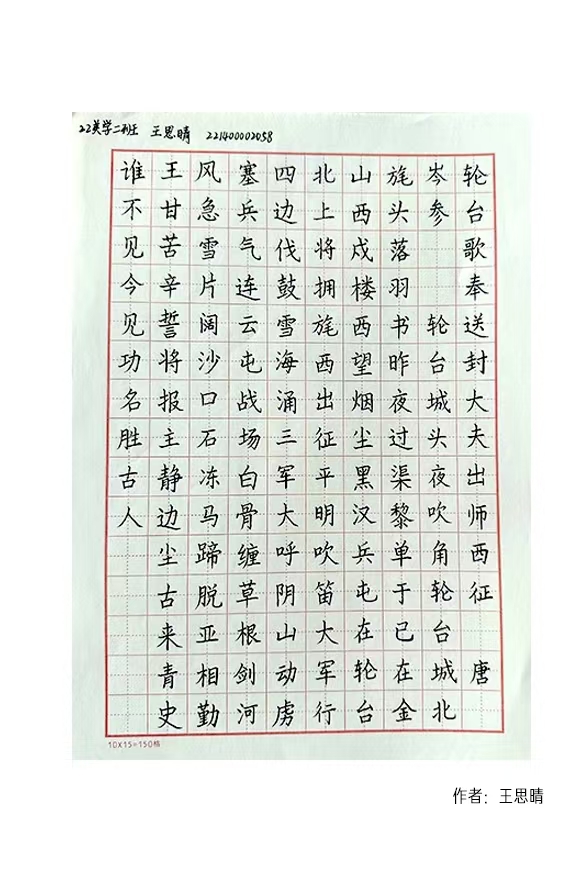 王思晴 221400002058
轮台歌奉送封大夫出师西征 唐
岑参 轮台城头夜吹角轮台城北
旄头落羽书昨夜过渠黎单于已在金
山西戍楼西望烟尘黑汉兵屯在轮台
北上将拥旄西出征平明吹笛大军行
四边伐鼓雪海涌三军大呼阴山动虏
塞兵气连云屯战场白骨缠草根剑河
风急雪片阔沙口石冻马蹄脱亚相勤
王甘苦辛誓将报主静边尘古来青史
谁不见今见功名胜古人
10X15=150格
作者：王思晴